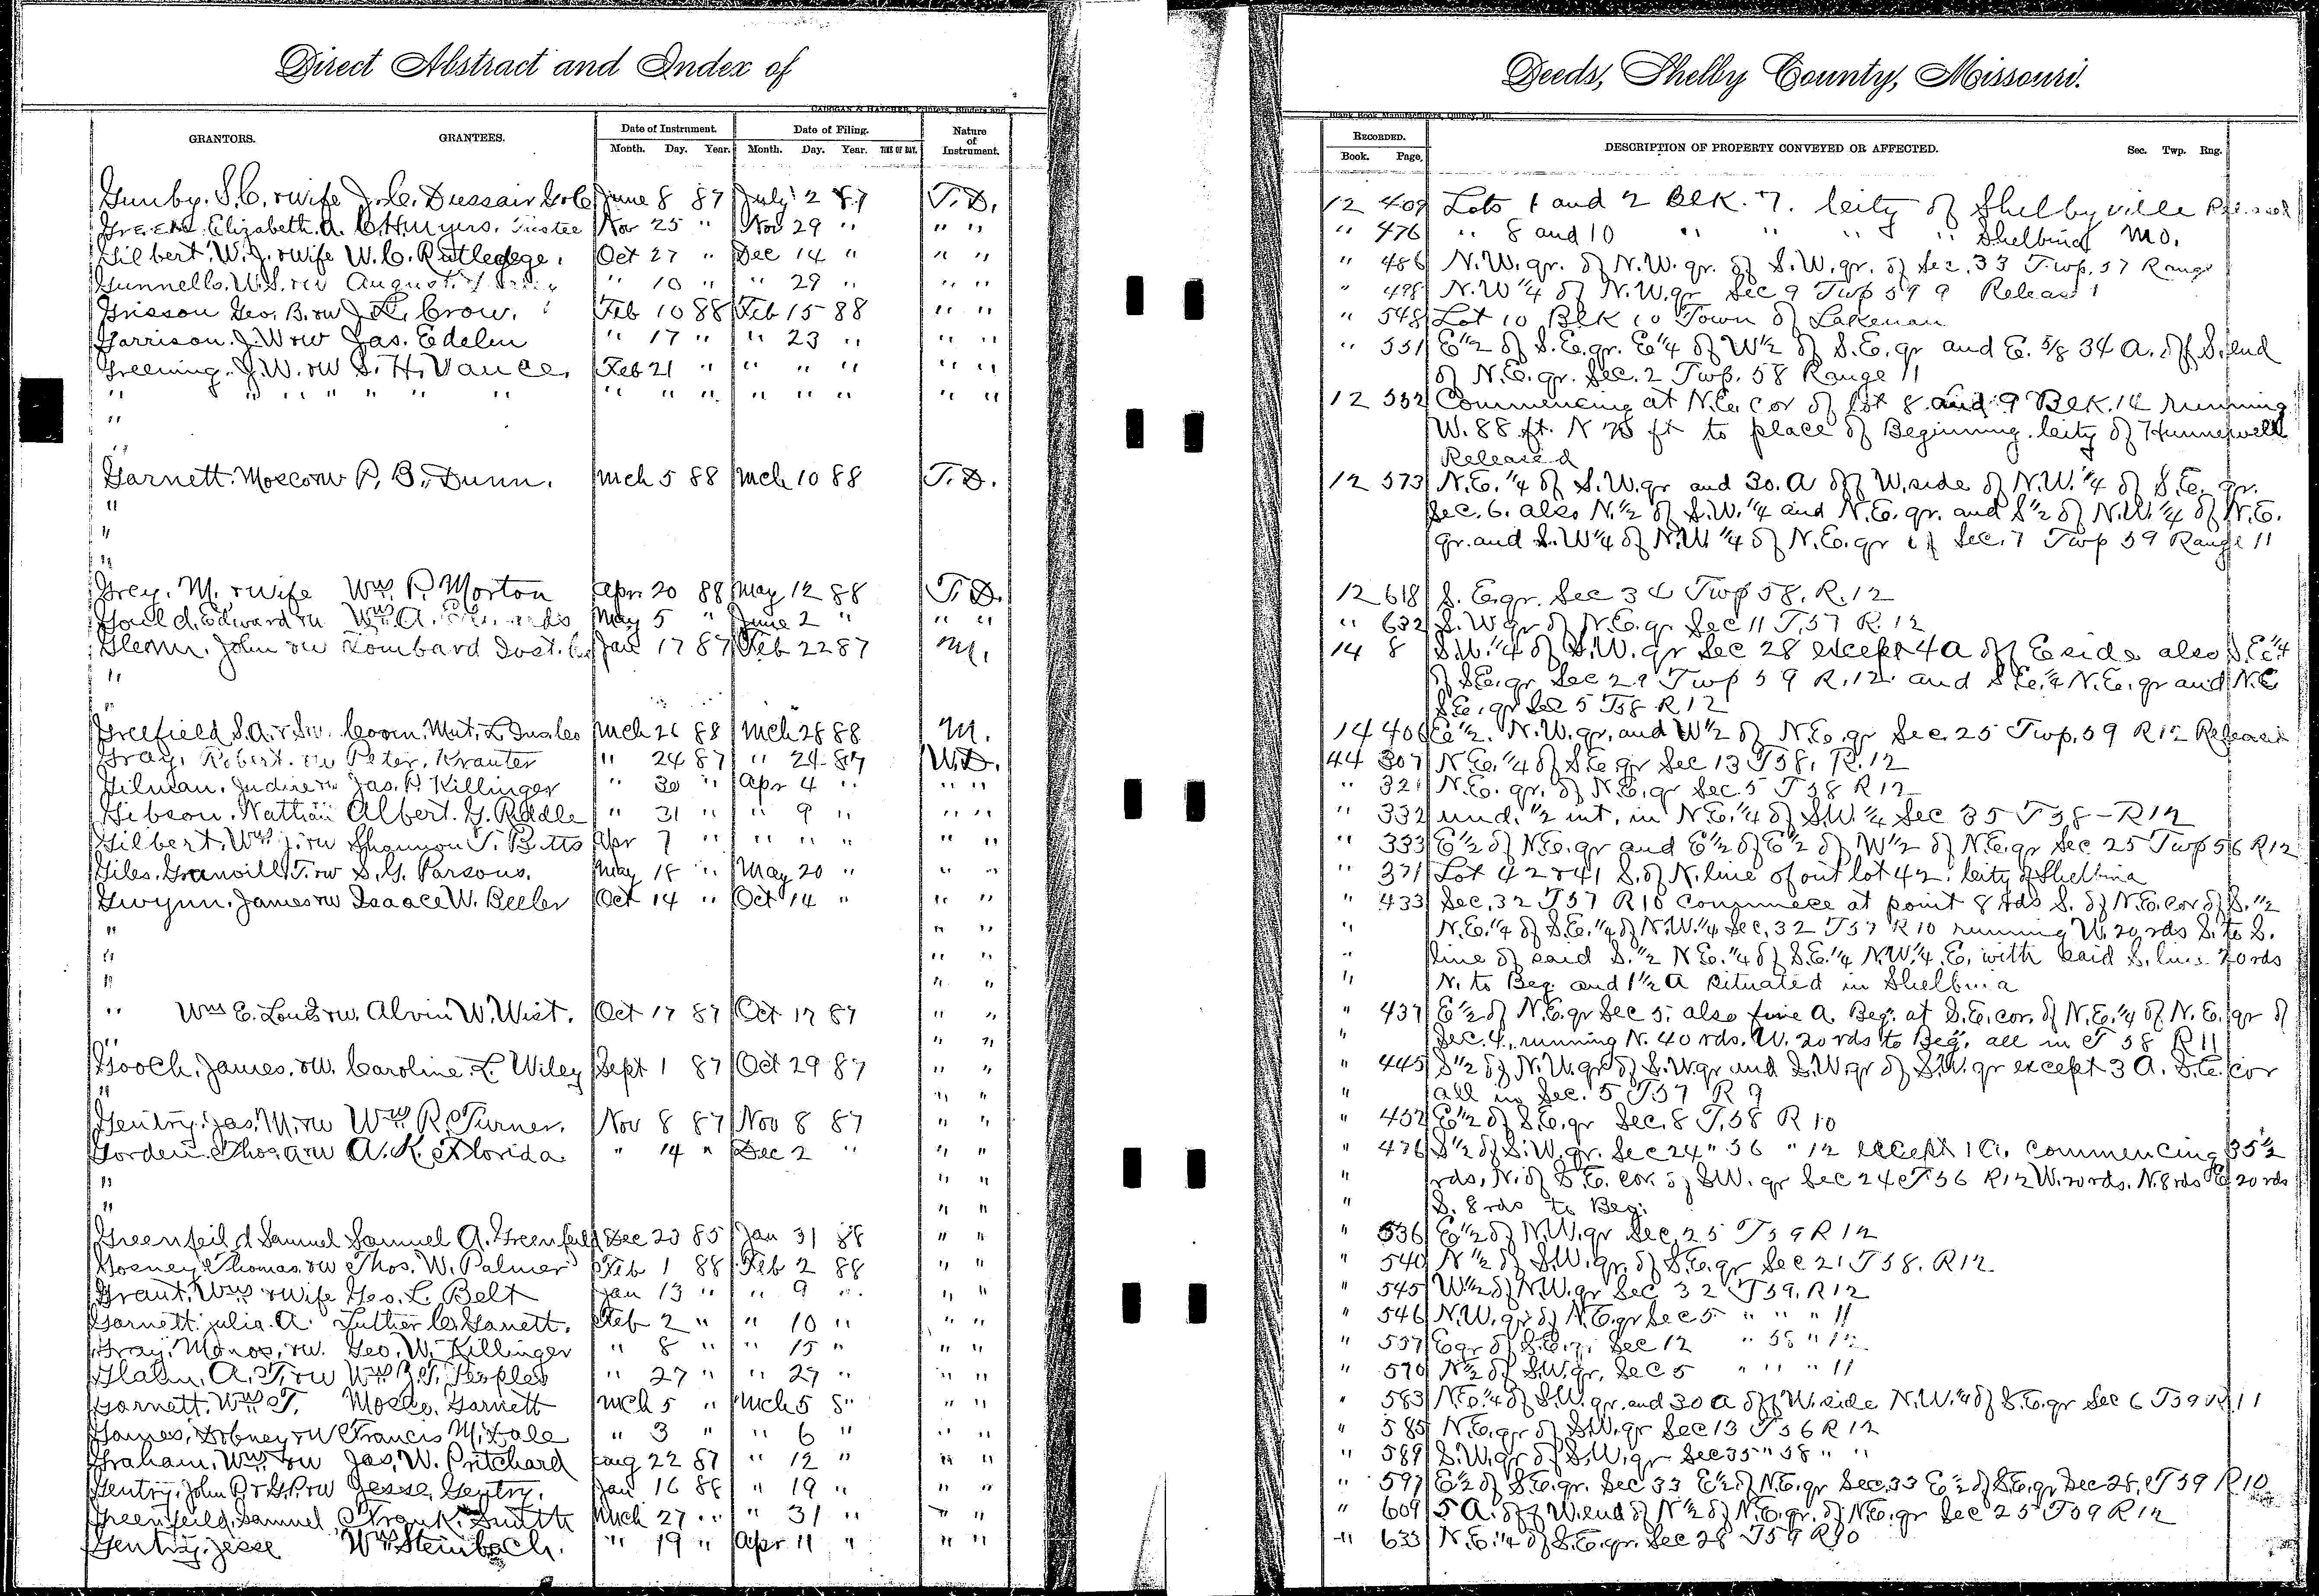 Direct Abstract and Index of
Deeds, Shelby County, Missouri.
CADOGAN & HATCHER, Printers, Binders and
Blank Book Manufacturers, Quincy, Ill.
GRANTORS. GRANTEES. Date of Instrument. Date of Filing. Nature of Instrument.
Month. Day. Year. Month. Day. Year. TIME OF DAY.
RECORDED. DESCRIPTION OF PROPERTY CONVEYED OR AFFECTED. Sec. Twp. Rng.
Book. Page.
Gunby. S.C. & wife J.C. Dussair June 8 87 July 2 87 T.D. 12 409 Lots 1 and 2 Blk. 7. City of Shelbyville Released
Green Elizabeth. A. C.H. Myers. Trustee Nov 25 " Nov 29 " " " " 476 " 8 and 10 " " " " Shelbina Mo.
Gilbert, W.J. & wife W.C. Rutledge. Oct 27 " Dec 14 " " " " 486 N.W. qr. of N.W. qr. of S.W. qr. of Sec. 33 Twp. 57 Range
Gunnells. W.S. & w August " 10 " " 29 " " " " 498 N.W 1/4 of N.W. qr Sec 9 Twp 59 9 Release
Grisson Geo. B. & w J. L. Crow. Feb 10 88 Feb 15 88 " " " 548 Lot 10 Blk 10 Town of Lakenan
Garrison. J. W & w Jas. Edelen " 17 " " 23 " " " " 551 E 1/2 of S.E. qr. E 1/4 of W 1/2 of S.E. qr and E. 5/8 34 A. of S. end
Greening. J.W. & w S. H. Vance. Feb 21 " " " " " " of N.E. qr. Sec. 2 Twp. 58 Range 11
" " " " " " " " " " " " " " " " 12 552 Commencing at N.E. cor of lot 8 and 9 Blk. 14 running
" W. 88 ft. N 78 ft to place of Beginning. City of Hunnewell
" Released
Garnett. Mosco & w P. B. Dunn. Mch 5 88 Mch 10 88 T.D. 12 573 N.E. 1/4 of S.W. qr and 30. A off W. side of N.W. 1/4 of S.E. qr.
" Sec. 6. also N. 1/2 of S.W. 1/4 and N.E. qr. and S 1/2 of N.W. 1/4 of N.E.
" qr. and S.W 1/4 of N.W 1/4 of N.E. qr of Sec. 7 Twp 59 Range 11
"
Grey. M. & wife Wm. P. Morton Apr 20 88 May 12 88 T.D. 12 618 S. E. qr. Sec 34 Twp 58. R. 12
Gould. Edward & w Wm. A. May 5 " June 2 " " " " 632 S. W qr of N.E. qr Sec 11 T. 57 R. 12
Glenn. John & w Lombard Inst. Co Jan 17 87 Feb 22 87 M. 14 8 S.W. 1/4 of S.W. qr Sec 28 except 4 A off E side also S.E. 1/4
" of S.E. qr Sec 29 Twp 59 R. 12 and S.E. 1/4 N.E. qr and N.E
" S.E. qr Sec 5 T58 R12
Greefield S.A. & Conn. Mut. L Mch 26 88 Mch 28 88 M. 14 406 E 1/2. N.W. qr. and W 1/2 of N.E. qr Sec. 25 Twp. 59 R12 Released
Gray, Robert. & w Peter. Krauter " 24 87 " 24 87 W.D. 44 307 N.E. 1/4 of S.E. qr Sec 13 T58. R. 12
Gilman. & w Jas. P. Killinger " 30 " Apr 4 " " " " 321 N.E. qr. of N.E. qr Sec. 5 T58 R12
Gibson. Nathan Albert. G. Riddle " 31 " " 9 " " " " 332 und. 1/2 int. in N.E. 1/4 of S.W. 1/4 Sec 35 T58-R12
Gilbert. Wm J. & w Shannon T. Bitts Apr 7 " " " " " " " 333 E 1/2 of N.E. qr and E 1/2 of E 1/2 of W 1/2 of N.E. qr Sec. 25 Twp 56 R12
Giles. Granvill T. & w S. G. Parsons. May 18 " May 20 " " " " 371 Lot 42 & 41 S. of N. line of out lot 42. City of Shelbina
Gwynn. James & w Isaac W. Beeler Oct 14 " Oct 14 " " " " 433 Sec. 32 T57 R10 Commece at point 8 rds S. of N.E. cor of S. 1/2
" " " " N.E. 1/4 of S.E. 1/4 of N.W. 1/4 Sec. 32 T57 R10 running W. 20 rds S. to S.
" " " " line of said S. 1/2 N.E. 1/4 of S.E. 1/4 N.W. 1/4. E. with said S. line 20 rds
" " " " N. to Beg. and 1 1/2 A situated in Shelbina
" Wm E. Loutz & w. Alvin W. Wist. Oct 17 87 Oct 17 87 " " " 437 E 1/2 of N.E. qr Sec 5. also five A. Beg. at S.E. cor. of N.E. 1/4 of N.E. qr of
" " " " Sec. 4. running N. 40 rds. W. 20 rds to Beg. all in T 58 R11
Gooch. James. & w. Caroline. L. Wiley Sept 1 87 Oct 29 87 " " " 445 S 1/2 of N.W. qr of S.W. qr and S.W. qr of S.W. qr except 3 A. S.E. cor
" " " " all in Sec. 5 T57 R 9
Gentry. Jas. M. & w Wm R. Turner. Nov 8 87 Nov 8 87 " " " 452 E 1/2 of S.E. qr Sec. 8 T.58 R 10
Gorden. Thos. A & w A. K. Florida " 14 " Dec 2 " " " " 476 S 1/2 of S.W. qr. Sec 24 " 56 " 12 except 1 A. Commencing 35 1/2
" " " " rds, N. of S.E. cor. of SW. qr Sec 24 T56 R12 W. 20 rds. N. 8 rds E 20 rds
" " " " S. 8 rds to Beg.
Greenfeild Samuel Samuel A. Greenfeild Dec 23 85 Jan 31 88 " " " 536 E 1/2 of N.W. qr Sec. 25 T59 R12
Gosney Thomas. & w Thos. W. Palmer Feb 1 88 Feb 2 88 " " " 540 N 1/2 of S.W. qr. of S.E. qr Sec 21 T58. R12
Grant. Wm & wife Geo. L. Belt Jan 13 " " 9 " " " " 545 W 1/2 of N.W. qr Sec 32 T59. R12
Garnett. Julia. A. Luther C. Garnett. Feb 2 " " 10 " " " " 546 N.W. qr of N.E. qr Sec 5 " " " 11
Gray. & w. Geo. W. Killinger " 8 " " 15 " " " " 557 E qr of S.E. qr Sec 12 " 58 " 12
Glahn. A. T. & w Wm B.T. Peoples " 27 " " 27 " " " " 570 N 1/2 of S.W. qr. Sec 5 " " " 11
Garnett. Wm T. Mosco. Garnett Mch 5 " Mch 5 8" " " " 583 N.E. 1/4 of S.W. qr. and 30 A off W. side N.W. 1/4 of S.E. qr Sec 6 T59 R 11
Games. Dobney & w Francis M. Dale " 3 " " 6 " " " " 585 N.E. qr of S.W. qr Sec 13 T56 R12
Graham. Wm & w Jas. W. Pritchard Aug 22 87 " 12 " " " " 589 S.W. qr of S.W. qr Sec 35 " 58 " "
Gentry. John P & G.P. & w Jesse. Gentry. Jan 16 88 " 19 " " " " 597 E 1/2 of S.E. qr. Sec 33 E 1/2 of N.E. qr Sec. 33 E 1/2 of S.E. qr Sec 28. T59 R10
Greenfeild. Samuel Frank. Smith Mch 27 " " 31 " " " " 609 5 A. off W. end of N 1/2 of N.E. qr. of N.E. qr Sec 25 T59 R12
Gentry. Jesse Wm Steinbach. " 19 " Apr 11 " " " " 633 N.E. 1/4 of S.E. qr. Sec 28 T59 R10